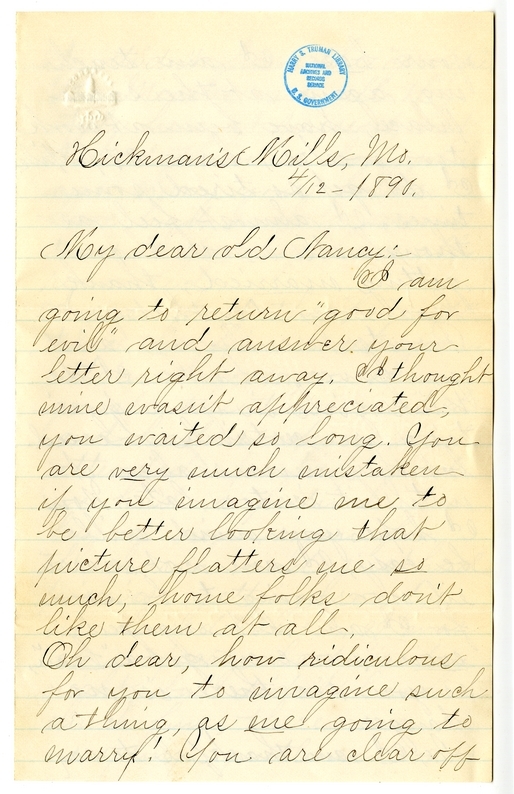 HARRY S. TRUMAN LIBRARY
NATIONAL
ARCHIVES AND
RECORDS
SERVICE
U. S. GOVERNMENT
Hickman's Mills, Mo.
4/12-1890.
My dear old Nancy:-
I am
going to return "good for
evil" and answer your
letter right away. I thought
mine wasn't appreciated,
you waited so long. You
are very much mistaken
if you imagine me to
be better looking that
picture flatters me so
much, home folks don't
like them at all.
Oh dear, how ridiculous
for you to imagine such
a thing, as me going to
marry! You are clear off